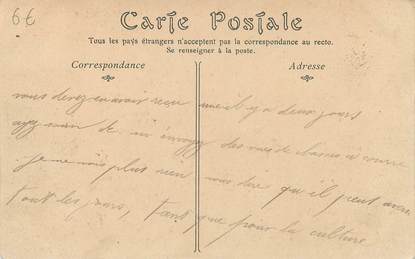 6€
Carte Postale
Tous les pays étrangers n'acceptent pas la correspondance au recto.
Se renseigner à la poste.
Correspondance
Adresse
vous devez en avoir reçu une il y a deux jours
de m'envoyer des
je ne vois plus rien vous dire qu'il peut
tout les jours, tant que pour la culture